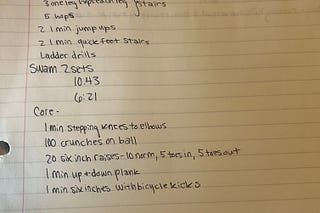 3 one leg hop each leg stairs
5 hops
2 1 min jump ups
2 1 min quick feet stairs
Ladder drills
Swam 2 sets
10:43
6:21
Core -
1 min stepping knees to elbows
100 crunches on ball
20 six inch raises - 10 norm, 5 toes in, 5 toes out
1 min up + down plank
1 min six inches with bicycle kicks